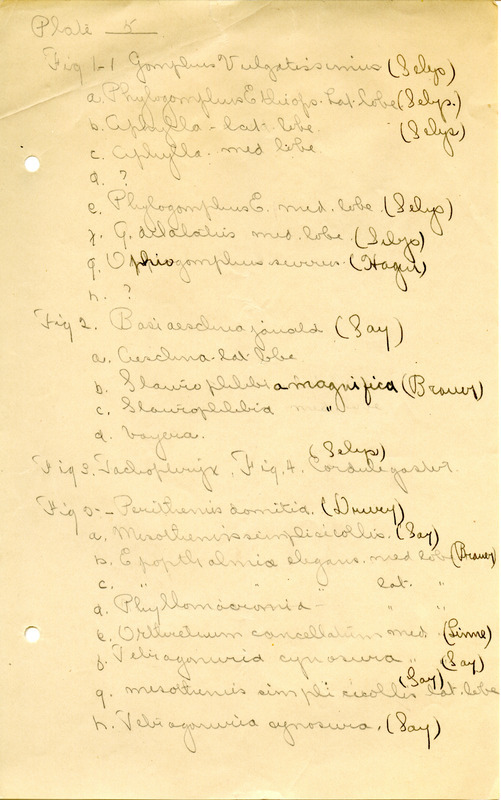 Plate 5
Fig 1-1 Gomphus Vulgatissimus (Selys)
a. Phylogomphus Ethiops. Lat. lobe (Selys.)
b. Aphylla - Lat. lobe. (Selys)
c. Aphylla. med lobe.
d. ?
e. Phylogomphus E. med. lobe. (Selys)
f. G. med. lobe. (Selys)
g. Ophiogomphus severus (Hagen)
h. ?
Fig 2. Basiaeschna janata (Say)
a. Aeschna. Lat. lobe
b. Staurophlebia magnifica (Brauer)
c. Staurophlebia "
d. Boyeria.
(Selys)
Fig 3. Tachopteryx. Fig. 4. Cordulegaster.
Fig 5 - Perithemis domitia. (Drury)
a. Mesothemis simplicicollis. (Say)
b. Epopthalmia elegans. med lobe (Brauer)
c. " " " lat. "
d. Phyllomacromia - " "
e. Orthretrum cancellatum med. (Linne)
f. Tetragonuria cynosura " (Say)
(Say)
g. mesothemis simplicicollis lat. lobe
h. Tetragonuria cynosura. (Say)